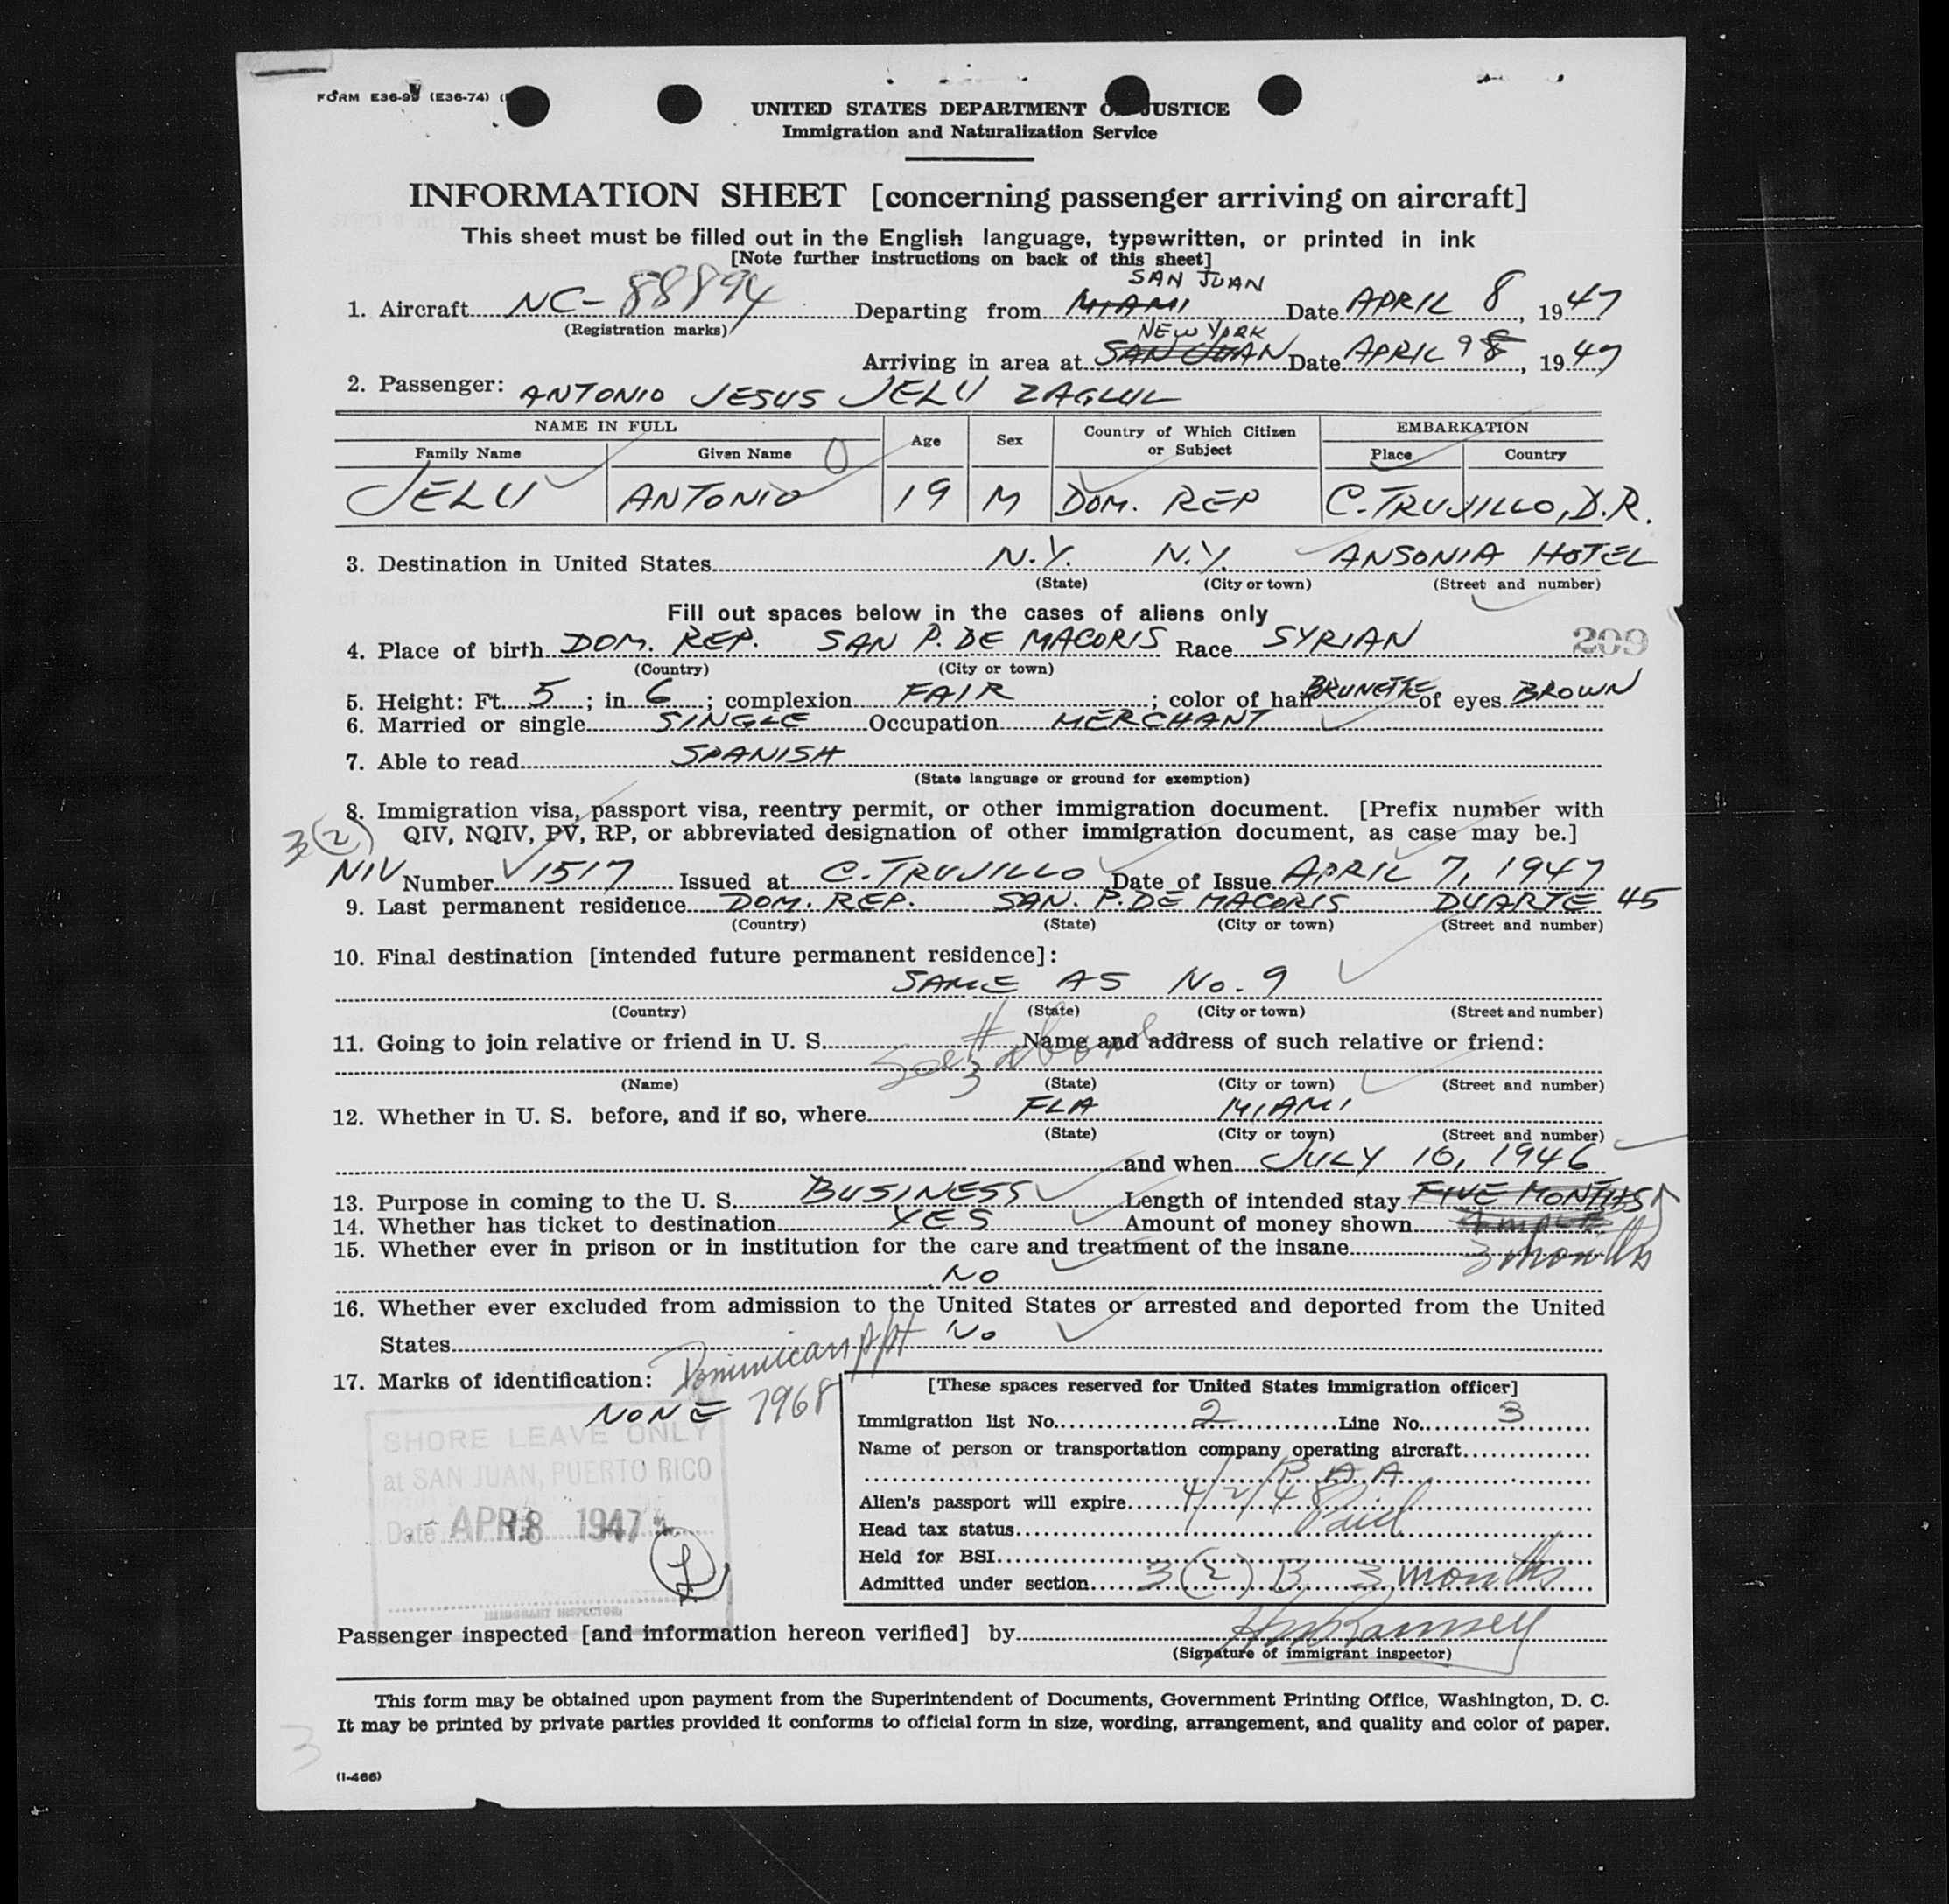 FORM E36-9 (E36-74) (
UNITED STATES DEPARTMENT OF JUSTICE
Immigration and Naturalization Service
INFORMATION SHEET [concerning passenger arriving on aircraft]
This sheet must be filled out in the English language, typewritten, or printed in ink
[Note further instructions on back of this sheet]
SAN JUAN
1. Aircraft NC-88894 Departing from MIAMI Date APRIL 8, 1947
(Registration marks)
NEW YORK
Arriving in area at SAN JUAN Date APRIL 9 8, 1947
2. Passenger: ANTONIO JESUS JELU ZAGLUL
NAME IN FULL Age Sex Country of Which Citizen or Subject EMBARKATION
Family Name Given Name Place Country
JELU ANTONIO 19 M DOM. REP C. TRUJILLO, D.R.
3. Destination in United States N.Y. N.Y. ANSONIA HOTEL
(State) (City or town) (Street and number)
Fill out spaces below in the cases of aliens only
4. Place of birth DOM. REP. SAN P. DE MACORIS Race SYRIAN 209
(Country) (City or town)
5. Height: Ft. 5; in 6; complexion FAIR; color of hair BRUNETTE of eyes BROWN
6. Married or single SINGLE Occupation MERCHANT
7. Able to read SPANISH
(State language or ground for exemption)
8. Immigration visa, passport visa, reentry permit, or other immigration document. [Prefix number with
3(2) QIV, NQIV, PV, RP, or abbreviated designation of other immigration document, as case may be.]
NIV Number 1517 Issued at C. TRUJILLO Date of Issue APRIL 7, 1947
9. Last permanent residence DOM. REP. SAN. P. DE MACORIS DUARTE 45
(Country) (State) (City or town) (Street and number)
10. Final destination [intended future permanent residence]:
SAME AS No. 9
(Country) (State) (City or town) (Street and number)
11. Going to join relative or friend in U. S. Name and address of such relative or friend:
See #3 above
(Name) (State) (City or town) (Street and number)
12. Whether in U. S. before, and if so, where FLA MIAMI
(State) (City or town) (Street and number)
and when JULY 10, 1946
13. Purpose in coming to the U. S. BUSINESS Length of intended stay FIVE MONTHS
14. Whether has ticket to destination YES Amount of money shown
15. Whether ever in prison or in institution for the care and treatment of the insane 3 months
No
16. Whether ever excluded from admission to the United States or arrested and deported from the United
States No
17. Marks of identification: Dominican ppt
NONE 7968
SHORE LEAVE ONLY
at SAN JUAN, PUERTO RICO
Date APR 8 1947
IMMIGRANT INSPECTOR
[These spaces reserved for United States immigration officer]
Immigration list No. 2 Line No. 3
Name of person or transportation company operating aircraft
P A A
Alien's passport will expire 4/2/48
Head tax status Paid
Held for BSI
Admitted under section 3(2) B 3 months
Passenger inspected [and information hereon verified] by HM Ramsey
(Signature of immigrant inspector)
This form may be obtained upon payment from the Superintendent of Documents, Government Printing Office, Washington, D. C.
It may be printed by private parties provided it conforms to official form in size, wording, arrangement, and quality and color of paper.
3
(I-466)